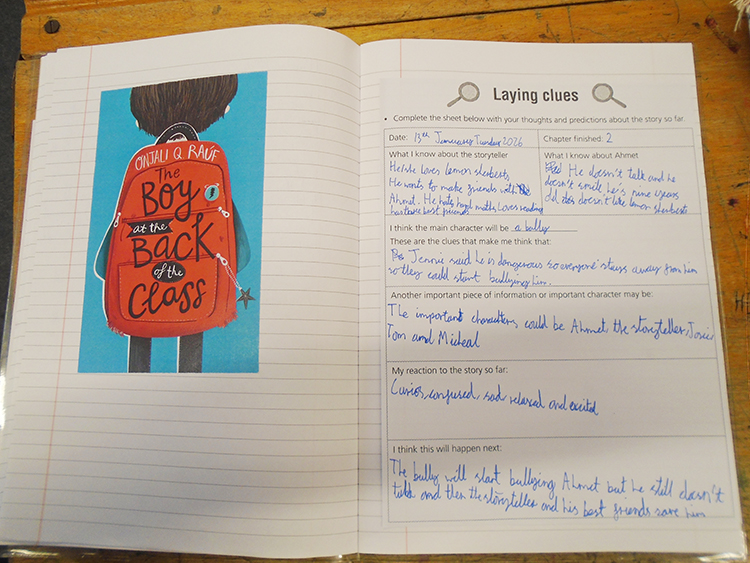 ONJALI Q RAÚF
The
BOY
at the
BACK
of the
Class
Laying clues
• Complete the sheet below with your thoughts and predictions about the story so far.
Date: 13th January Tuesday 2026
Chapter finished: 2
What I know about the storyteller
He/she loves lemon sherbests
He wants to make friends with
Ahmet. He hats hard maths, Loves reading
has three best friends
What I know about Ahmet
He doesn't talk and he
doesn't smile he's nine years
old doesn't like lemon sherbests
I think the main character will be a bully
These are the clues that make me think that:
Jennie said he is dangerous so everyone stays away from him
so they could start bullying him.
Another important piece of information or important character may be:
The important characters could be Ahmet, the storyteller, Josie,
Tom and Micheal
My reaction to the story so far:
Curios, confused, sad relaxed and excited
I think this will happen next:
The bully will start bullying Ahmet but he still doesn't
talk and then the storyteller and his best friends save him